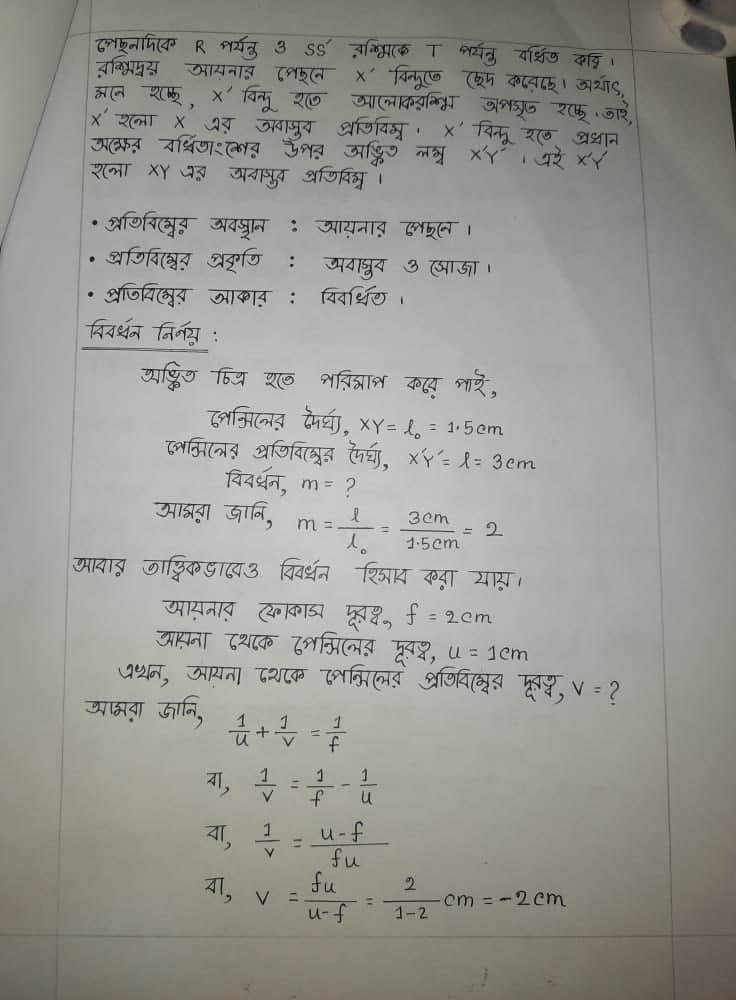 পেছনদিকে R পর্যন্ত ও SS′ রশ্মিকে T পর্যন্ত বর্ধিত করি।
রশ্মিদ্বয় আয়নার পেছনে X′ বিন্দুতে ছেদ করেছে। অর্থাৎ,
মনে হচ্ছে, X′ বিন্দু হতে আলোকরশ্মি অপসৃত হচ্ছে। তাই,
X′ হলো X এর অবাস্তব প্রতিবিম্ব। X′ বিন্দু হতে প্রধান
অক্ষের বর্ধিতাংশের উপর অঙ্কিত লম্ব X′Y′। এই X′Y′
হলো XY এর অবাস্তব প্রতিবিম্ব।
• প্রতিবিম্বের অবস্থান : আয়নার পেছনে।
• প্রতিবিম্বের প্রকৃতি : অবাস্তব ও সোজা।
• প্রতিবিম্বের আকার : বিবর্ধিত।
বিবর্ধন নির্ণয় :
অঙ্কিত চিত্র হতে পরিমাপ করে পাই,
পেন্সিলের দৈর্ঘ্য, XY = l₀ = 1.5cm
পেন্সিলের প্রতিবিম্বের দৈর্ঘ্য, X′Y′ = l = 3cm
বিবর্ধন, m = ?
আমরা জানি, m = l/l₀ = 3cm/1.5cm = 2
আবার তাত্ত্বিকভাবেও বিবর্ধন হিসাব করা যায়।
আয়নার ফোকাস দূরত্ব, f = 2cm
আয়না থেকে পেন্সিলের দূরত্ব, u = 1cm
এখন, আয়না থেকে পেন্সিলের প্রতিবিম্বের দূরত্ব, v = ?
আমরা জানি, 1/u + 1/v = 1/f
বা, 1/v = 1/f - 1/u
বা, 1/v = u-f/fu
বা, v = fu/u-f = 2/1-2 cm = -2cm